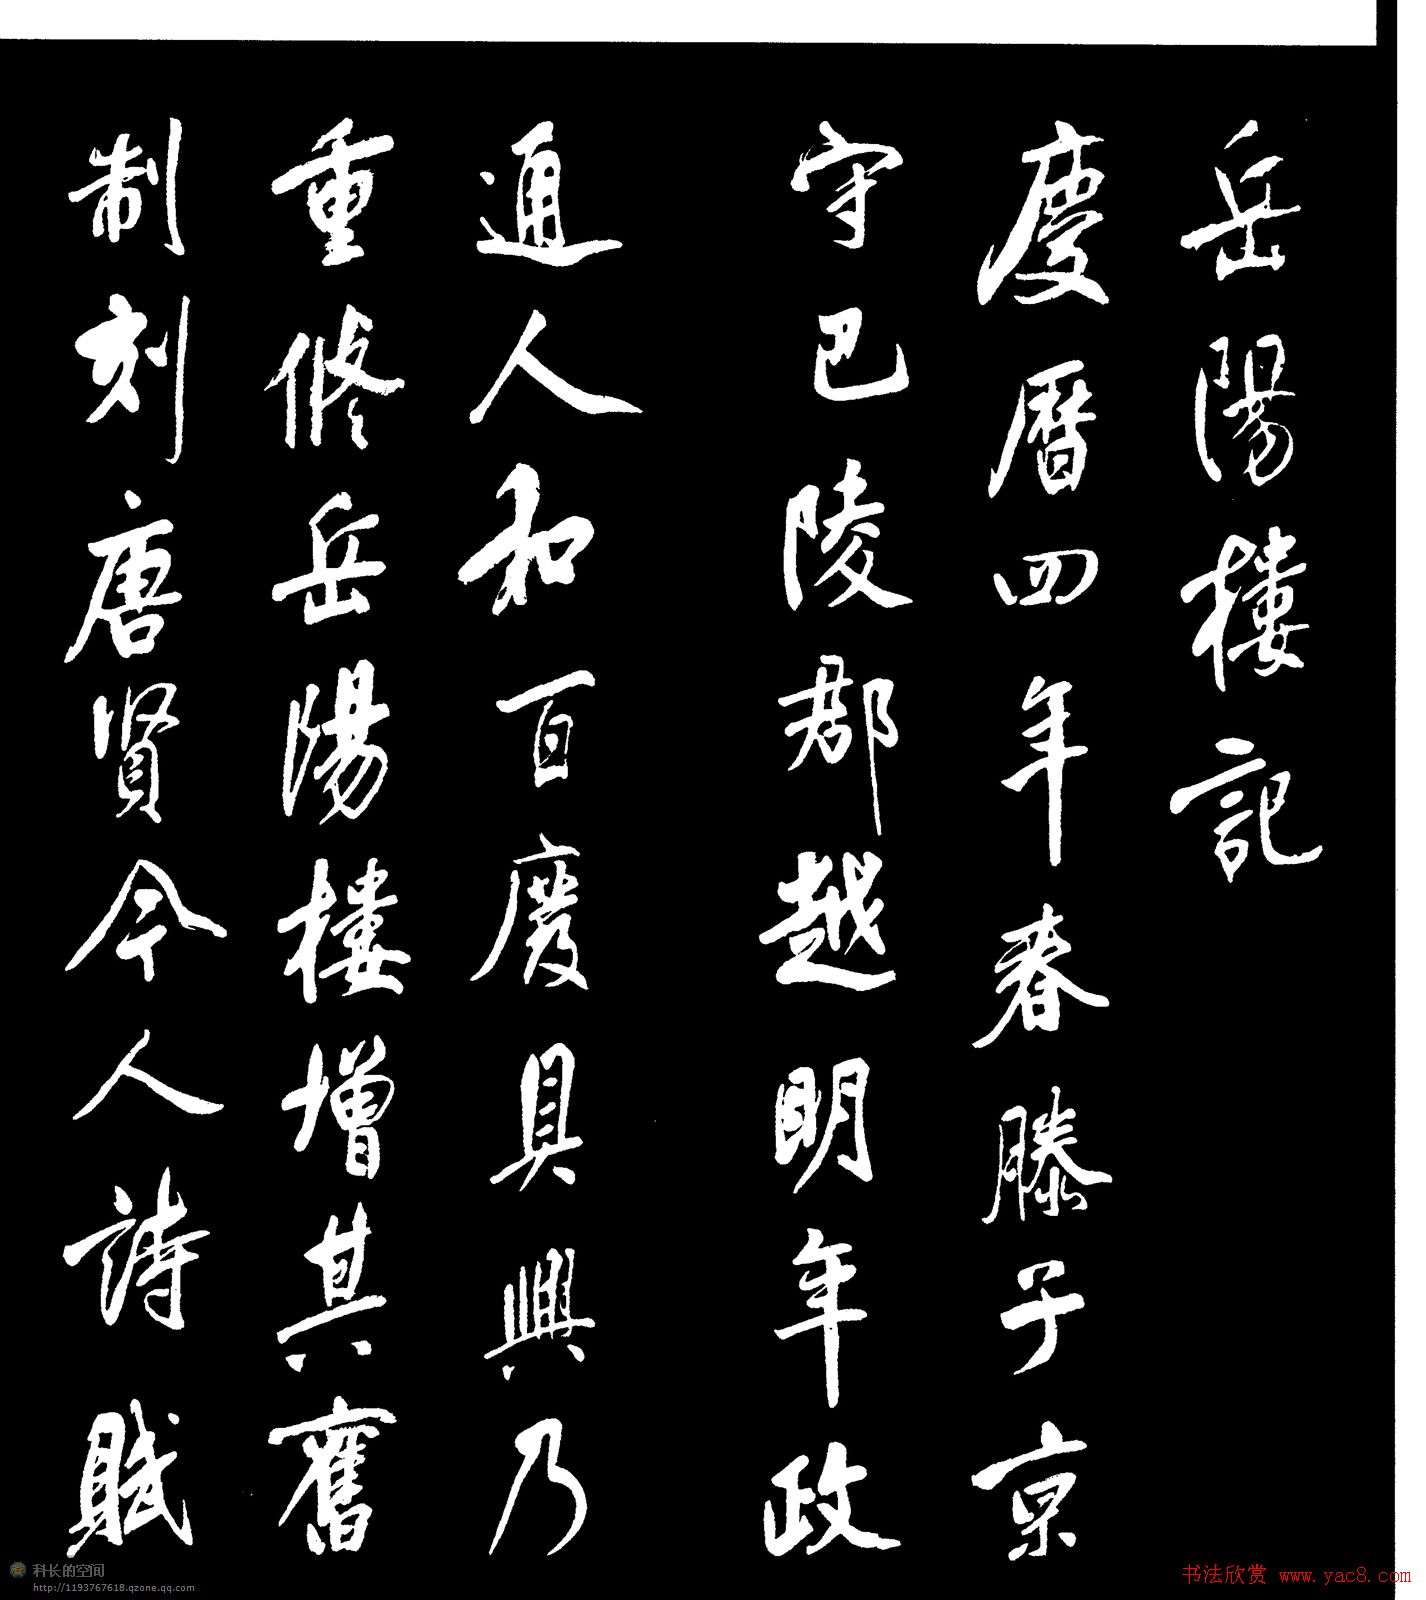 岳陽樓記
慶曆四年春滕子京
守巴陵郡越明年政
通人和百廢具興乃
重修岳陽樓增其舊
制刻唐賢今人詩賦
科长的空间
http://1193767618.qzone.qq.com
书法欣赏 www.yac8.com